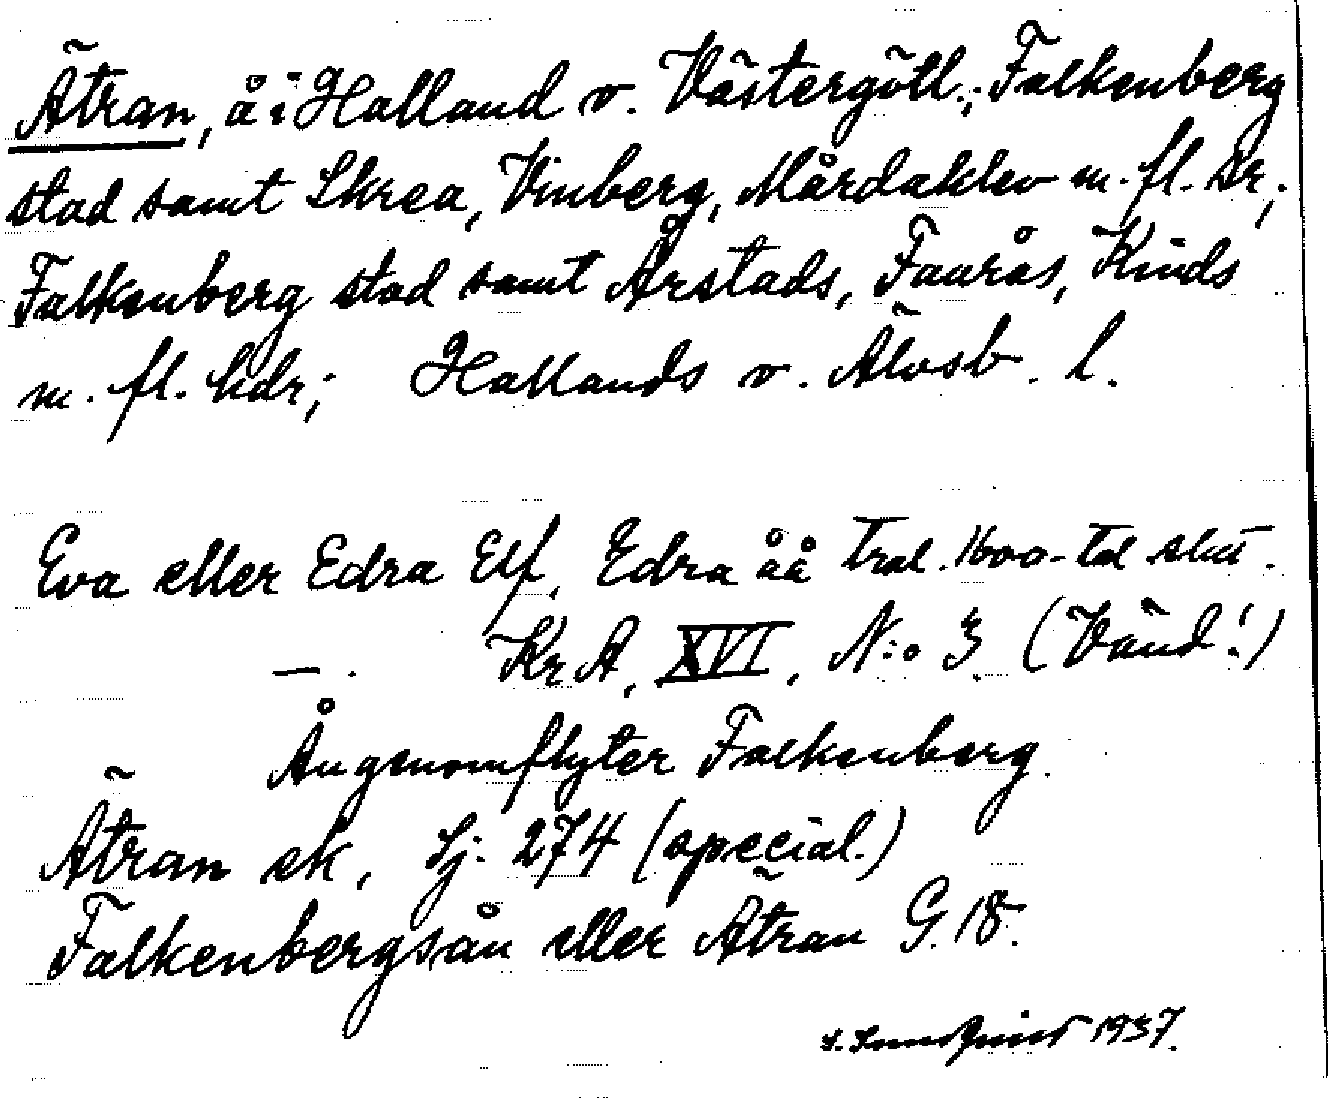 Ätran, å i Halland o. Västergötl.; Falkenberg
stad samt Skrea, Vinberg, Mårdaklev m. fl. sr,;
Falkenberg stad samt Årstads, Faurås, Kinds
m. fl. hdr,; Hallands o. Älvsb. l.
Eva eller Edra Elf, Edra åå tral. 1600-tal slut.
— . Kr A, XVI, N:o 3. (Vänd!)
Ån genomflyter Falkenberg.
Ätran ek, Sj. 274 (special.)
Falkenbergsån eller Ätran G. 18.
1937.